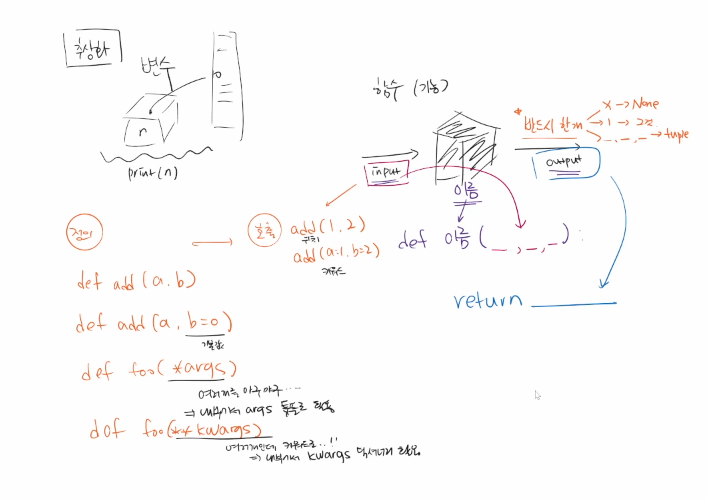 추상화
변수
n
print(n)
함수 (기능)
input
이름
* 반드시 한개
x → None
1 → 그것
_, _, _ → tuple
output
def 이름 ( _ , _ , _ ) :
return
정의
호출
add(1, 2)
위치
add(a=1, b=2)
키워드
def add (a, b)
def add (a, b=0)
기본값
def foo( *args)
여러개를 마구마구....
⇒ 내부에서 args 튜플로 활용
def foo(** kwargs)
여러개인데 키워드로..!!
⇒ 내부에서 kwargs 딕셔너리